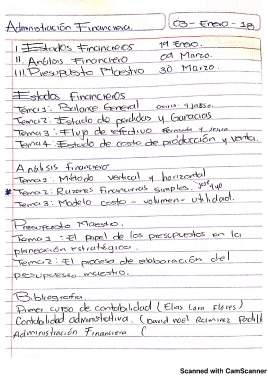 Administración Financiera. 03-Enero-18
I Estados Financieros 19 Enero.
II. Análisis Financiero 09 Marzo.
III Presupuesto Maestro 30 Marzo.
Estados Financieros
Tema 1: Balance General
Tema 2: Estado de perdidas y Ganacias
Tema 3: Flujo de efectivo
Tema 4: Estado de costo de producción y venta.
Análisis financiero
Tema 1: Método vertical y horizontal
* Tema 2: Razones financieras simples.
Tema 3: Modelo costo - volumen - utilidad.
Presupuesto Maestro.
Tema 1: El papel de los presupuestos en la
planeación estratégica.
Tema 2: El proceso de elaboración del
presupuesto maestro.
Bibliografía
Primer curso de contabilidad (Elias Lara Flores)
Contabilidad administrativa. (David Noel Ramirez Padill
Administración Financiera (
Scanned with CamScanner